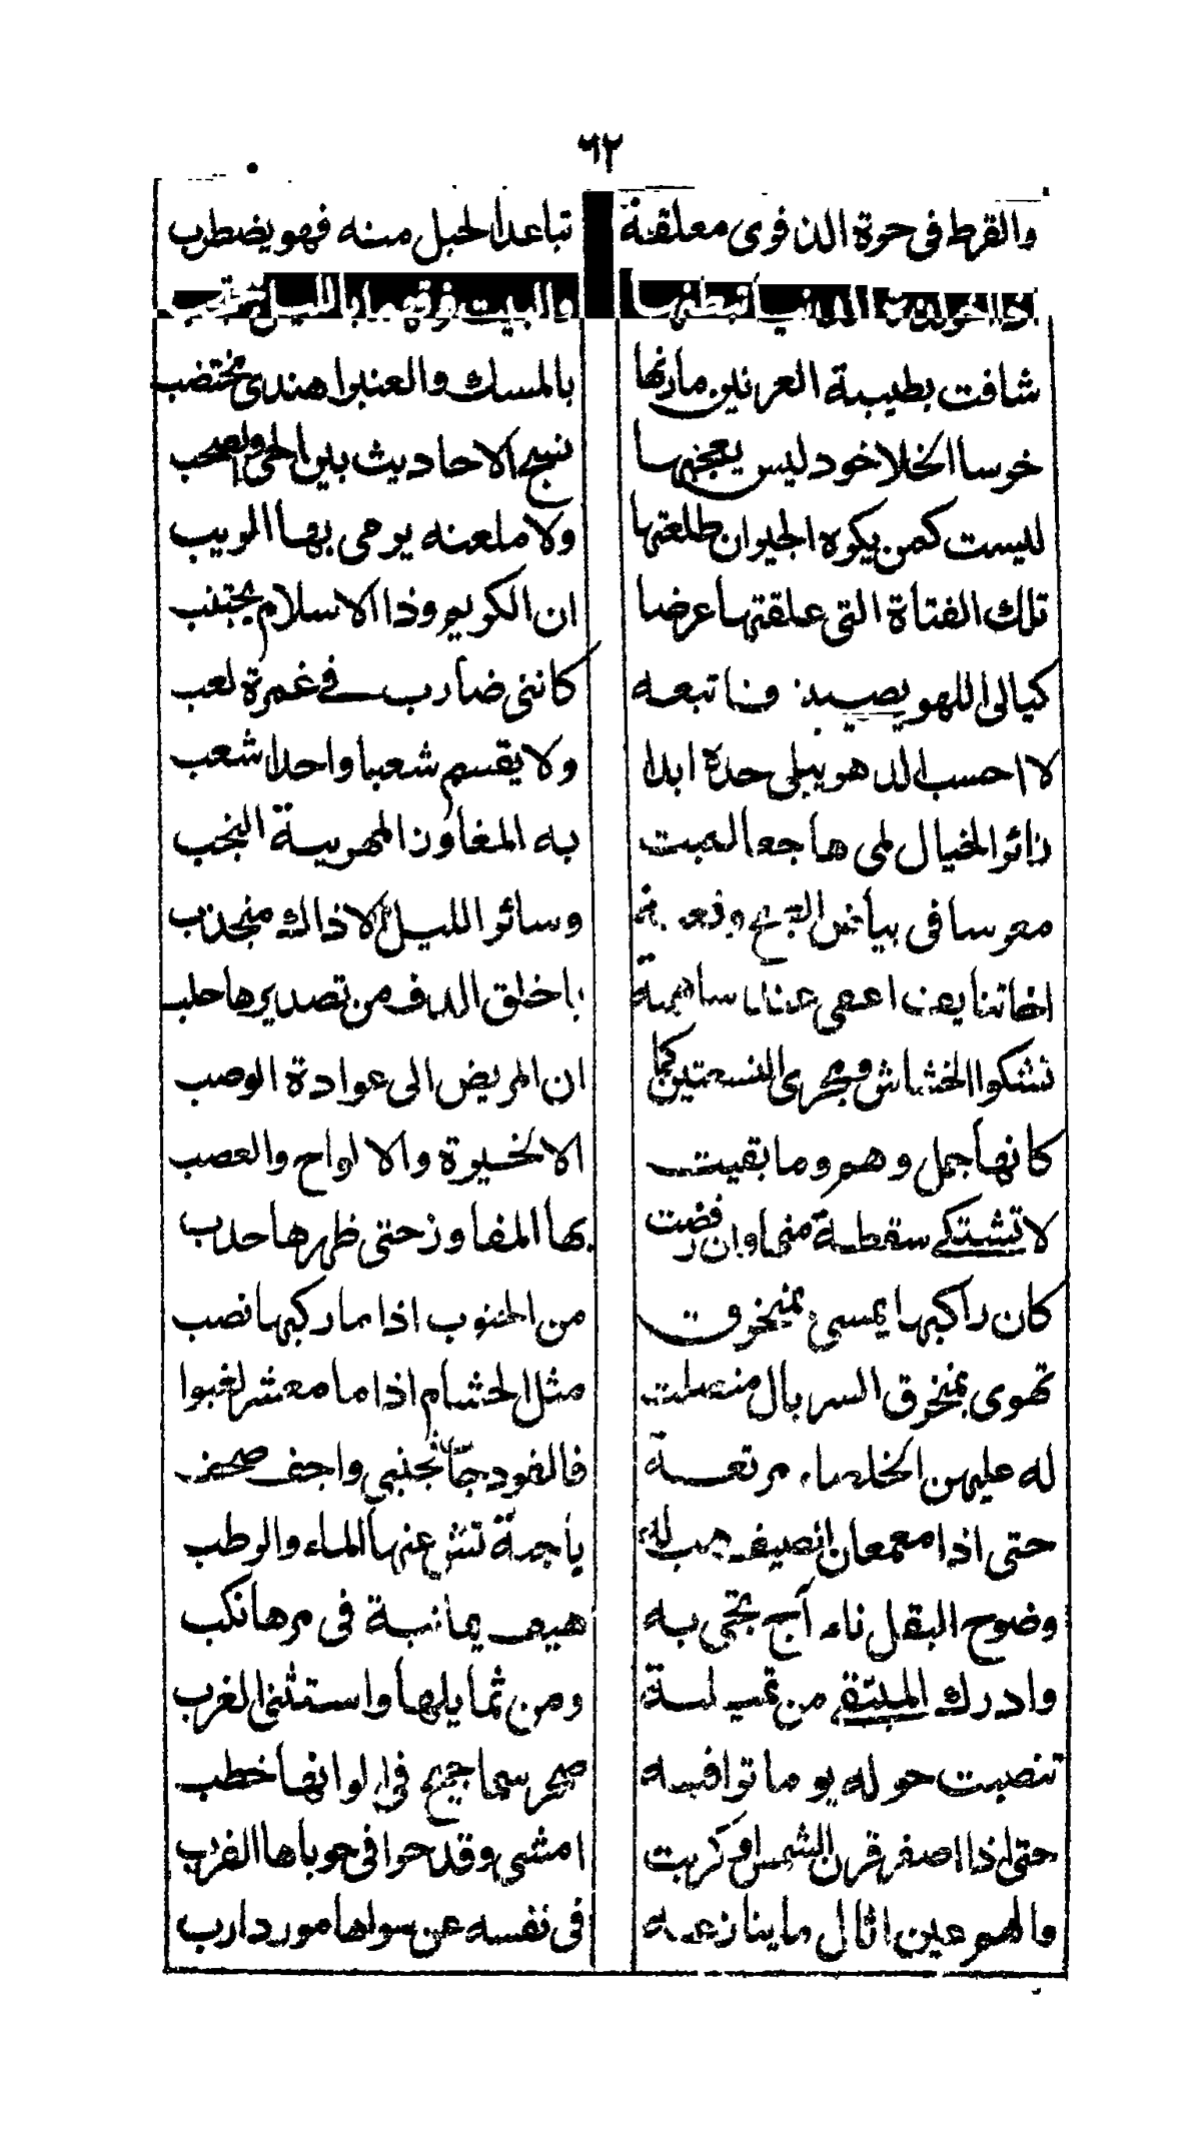 ٦٢
والقرط في حرة الذفرى معلقة تباعد الحبل منه فهو يضطرب
اذا اخو لذة الدنيا تبطنها والبيت فوقهما بالليل محتجب
شافت بطيبة العرنين مارنها بالمسك والعنبر الهندى مختضب
خرسا الخلاخود ليس يعجنها نسج الاحاديث بين الحى والصخب
ليست كمن يكره الجيران طلعتها ولا ملعنه يرمى بها الريب
تلك الفتاة التى علقتها عرضا ان الكريم وذا الاسلام يجتنب
ليالى اللهو فاتبعه كاننى ضارب فى غمرة لعب
لا احسب الدهر يبلى حدة ابدا ولا يقسم شعبا واحدا شعب
زائر الخيال لمى هاجعا لعبت به المفاوز المهرية النجب
معرسا فى بياض الصبح وسائر الليل الا ذاك منجذب
اخاتنايف اعفى عند ساهمة باخلق الدف من تصديرها جلب
تشكوا الخشاش ومجرى النسعتين كما ان المريض الى عوادة الوصب
كانها جمل وهم وما بقيت الا النحيزة والالواح والعصب
لا تشتكى سقطة منها وان رقصت بها المفاوز حتى ظهرها حدب
كان راكبها يمسى بمنخرق من الجنوب اذا ما ركبها نصب
تهوى بمنخرق السربال منصلت مثل الحسام اذا ما معشر لغبوا
له عليهن الخلصاء مرتعة فالفودجات فجنبى واحف صخب
حتى اذا معمعان الصيف هب له يأجة تنش عنها الماء والرطب
وضوح البقل ناء آج تجى به هيف يمانية فى مرها نكب
وادرك المتبقى من ثميلة ومن ثمايلها واستنثى الغرب
تنصبت حوله يوما تراقبه صحر سماحيج فى الوانها خطب
حتى اذا اصفر قرن الشمس او كربت امشى وقد حوا فى حوباها القرب
والهم عين اثال ما ينازعه فى نفسه عن سواها مورد ارب